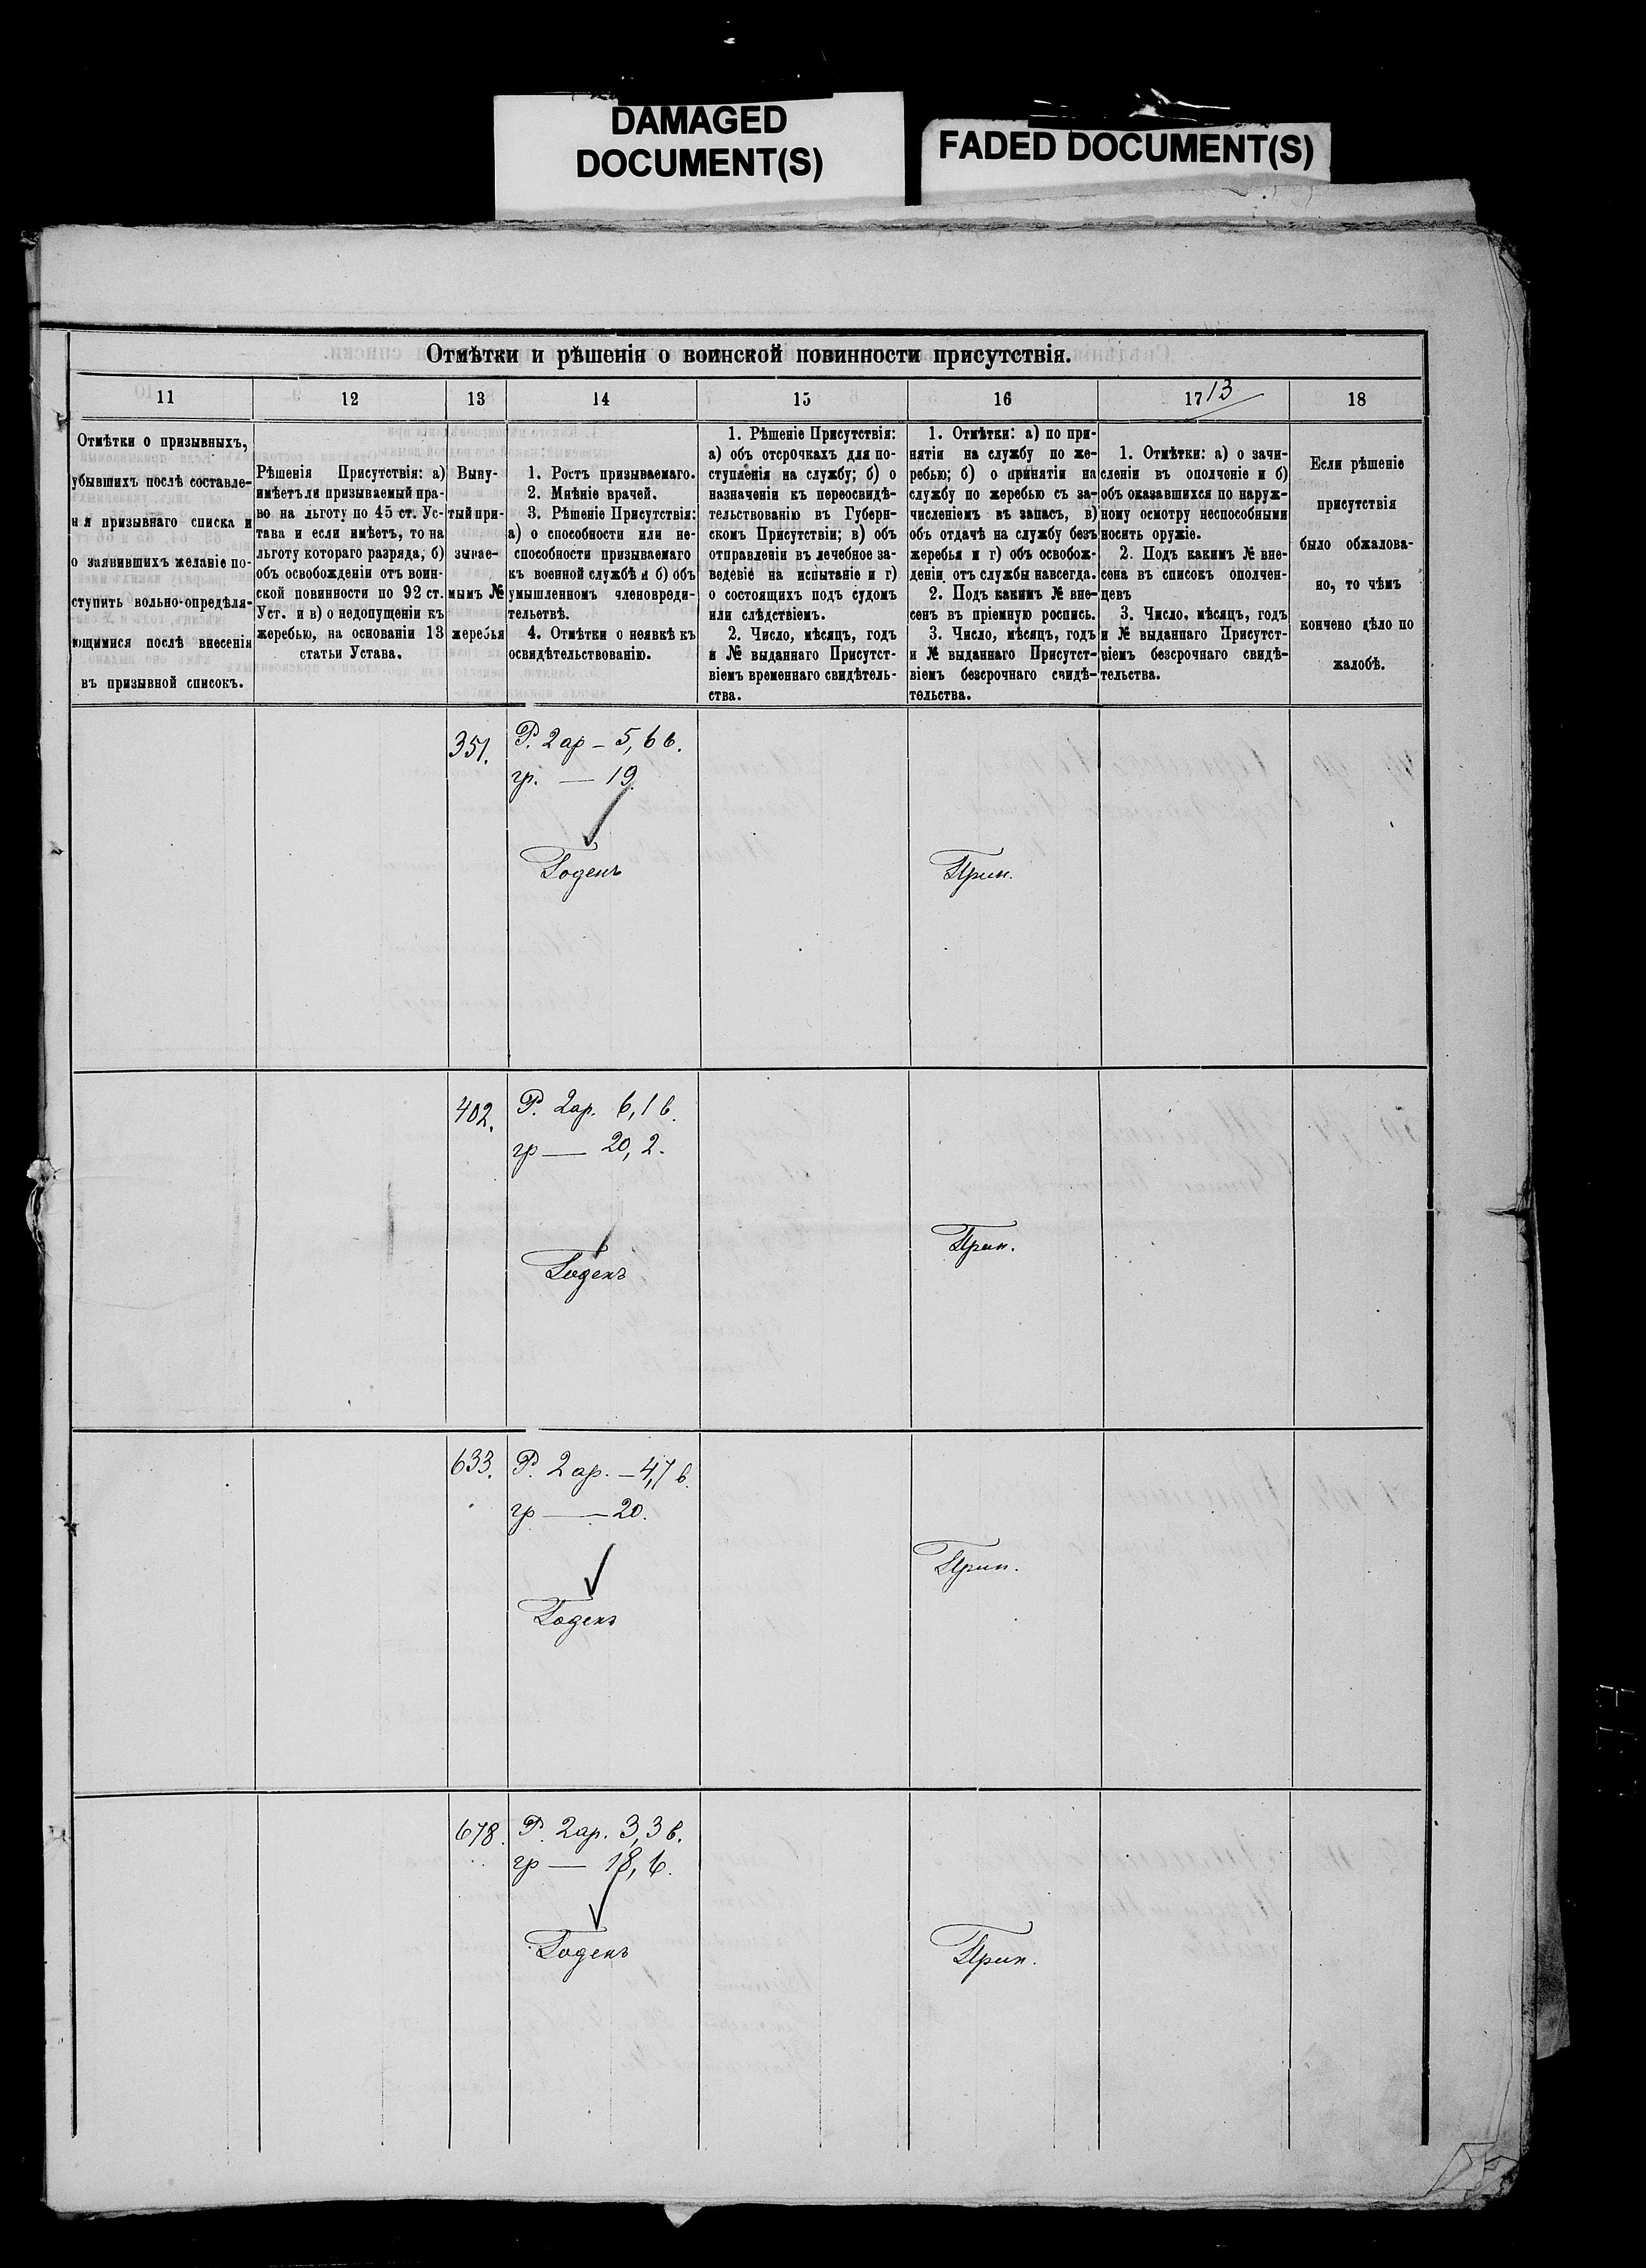 DAMAGED
DOCUMENT(S)
FADED DOCUMENT(S)
Отмѣтки и рѣшенія о воинской повинности присутствія.
11
12
13
14
15
16
17
13
18
Отмѣтки о призывныхъ,
убывшихъ послѣ составле-
нія призывнаго списка и
о заявившихъ желаніе по-
ступить вольно-опредѣля-
ющимися послѣ внесенія
въ призывной списокъ.
Рѣшенія Присутствія: а)
имѣетъ ли призываемый пра-
во на льготу по 45 ст. Ус-
тава и если имѣетъ, то на
льготу котораго разряда, б)
объ освобожденіи отъ воин-
ской повинности по 92 ст.
Уст. и в) о недопущеніи къ
жеребью, на основаніи 13
статьи Устава.
Выну-
тый при-
зывае-
мымъ №
жеребья
1. Ростъ призываемаго.
2. Мнѣніе врачей.
3. Рѣшеніе Присутствія:
а) о способности или не-
способности призываемаго
къ военной службѣ и б) объ
умышленномъ членовреди-
тельствѣ.
4. Отмѣтки о неявкѣ къ
освидѣтельствованію.
1. Рѣшеніе Присутствія:
а) объ отсрочкахъ для по-
ступленія на службу; б) о
назначеніи къ переосвидѣ-
тельствованію въ Губерн-
скомъ Присутствіи; в) объ
отправленіи въ лечебное за-
веденіе на испытаніе и г)
о состоящихъ подъ судомъ
или слѣдствіемъ.
2. Число, мѣсяцъ, годъ
и № выданнаго Присутст-
віемъ временнаго свидѣтель-
ства.
1. Отмѣтки: а) по при-
нятіи на службу по же-
ребью; б) о принятіи на
службу по жеребью съ за-
численіемъ въ запасъ, в)
объ отдачѣ на службу безъ
жеребья и г) объ освобож-
деніи отъ службы навсегда.
2. Подъ какимъ № вне-
сенъ въ пріемную роспись.
3. Число, мѣсяцъ, годъ
и № выданнаго Присутст-
віемъ безсрочнаго свидѣ-
тельства.
1. Отмѣтки: а) о зачи-
сленіи въ ополченіе и б)
объ оказавшихся по наруж-
ному осмотру неспособными
носить оружіе.
2. Подъ какимъ № вне-
сена въ списокъ ополчен-
цевъ
3. Число, мѣсяцъ, годъ
и № выданнаго Присутст-
віемъ безсрочнаго свидѣ-
тельства.
Если рѣшеніе
присутствія
было обжалова-
но, то чѣмъ
кончено дѣло по
жалобѣ.
351.
Р. 2 ар – 5,6 в.
гр. — 19.
Годенъ
Прин.
402.
Р. 2 ар. 6,1 в.
гр — 20,2.
Годенъ
Прин.
633.
Р. 2 ар. – 4,7 в.
гр — 20.
Годенъ
Прин.
678.
Р. 2 ар. 3,3 в.
гр — 18,6.
Годенъ
Прин.